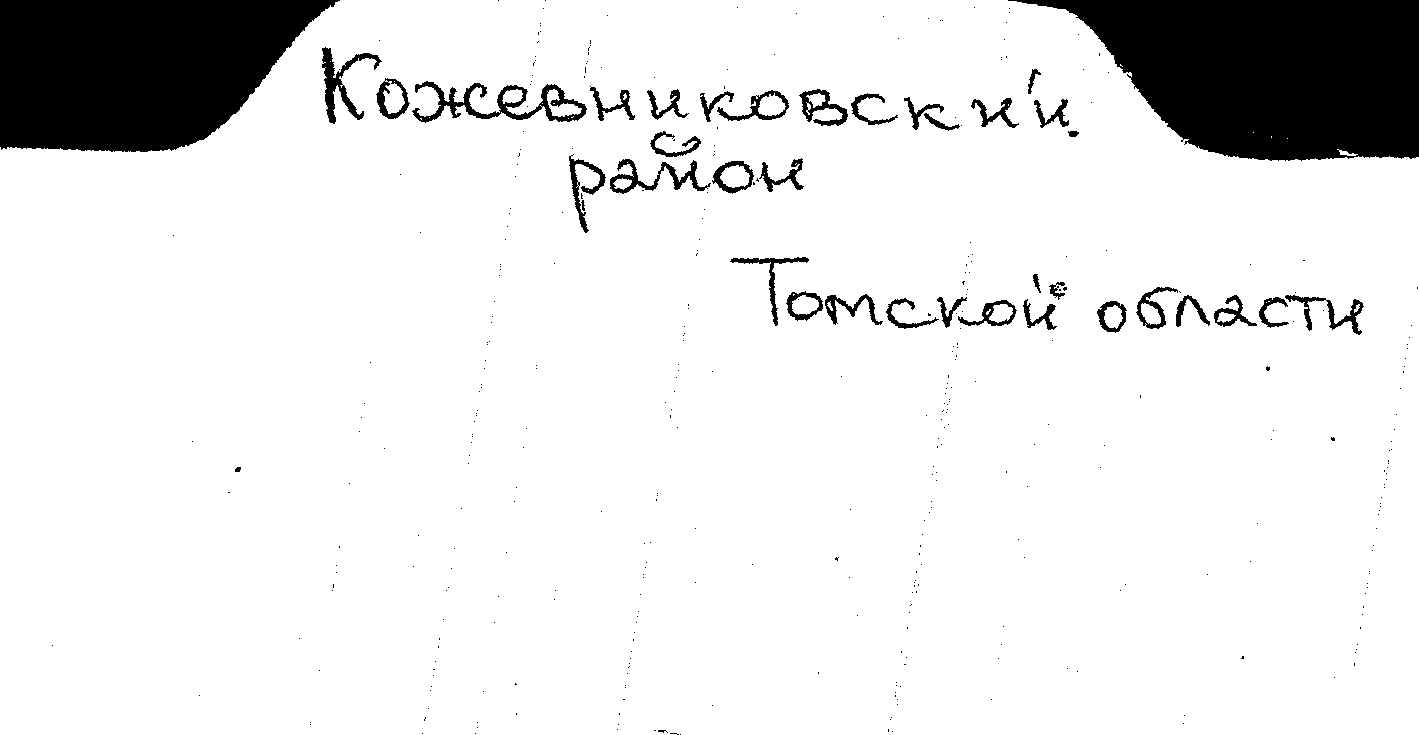 Кожевниковский
район
Томской области